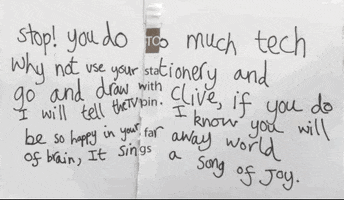 stop! you do TOo much tech
Why not use your stationery and
go and draw with Clive, if you do
I will tell theTVpin. I know you will
be so happy in your far away world
of brain, It sings a song of Joy.